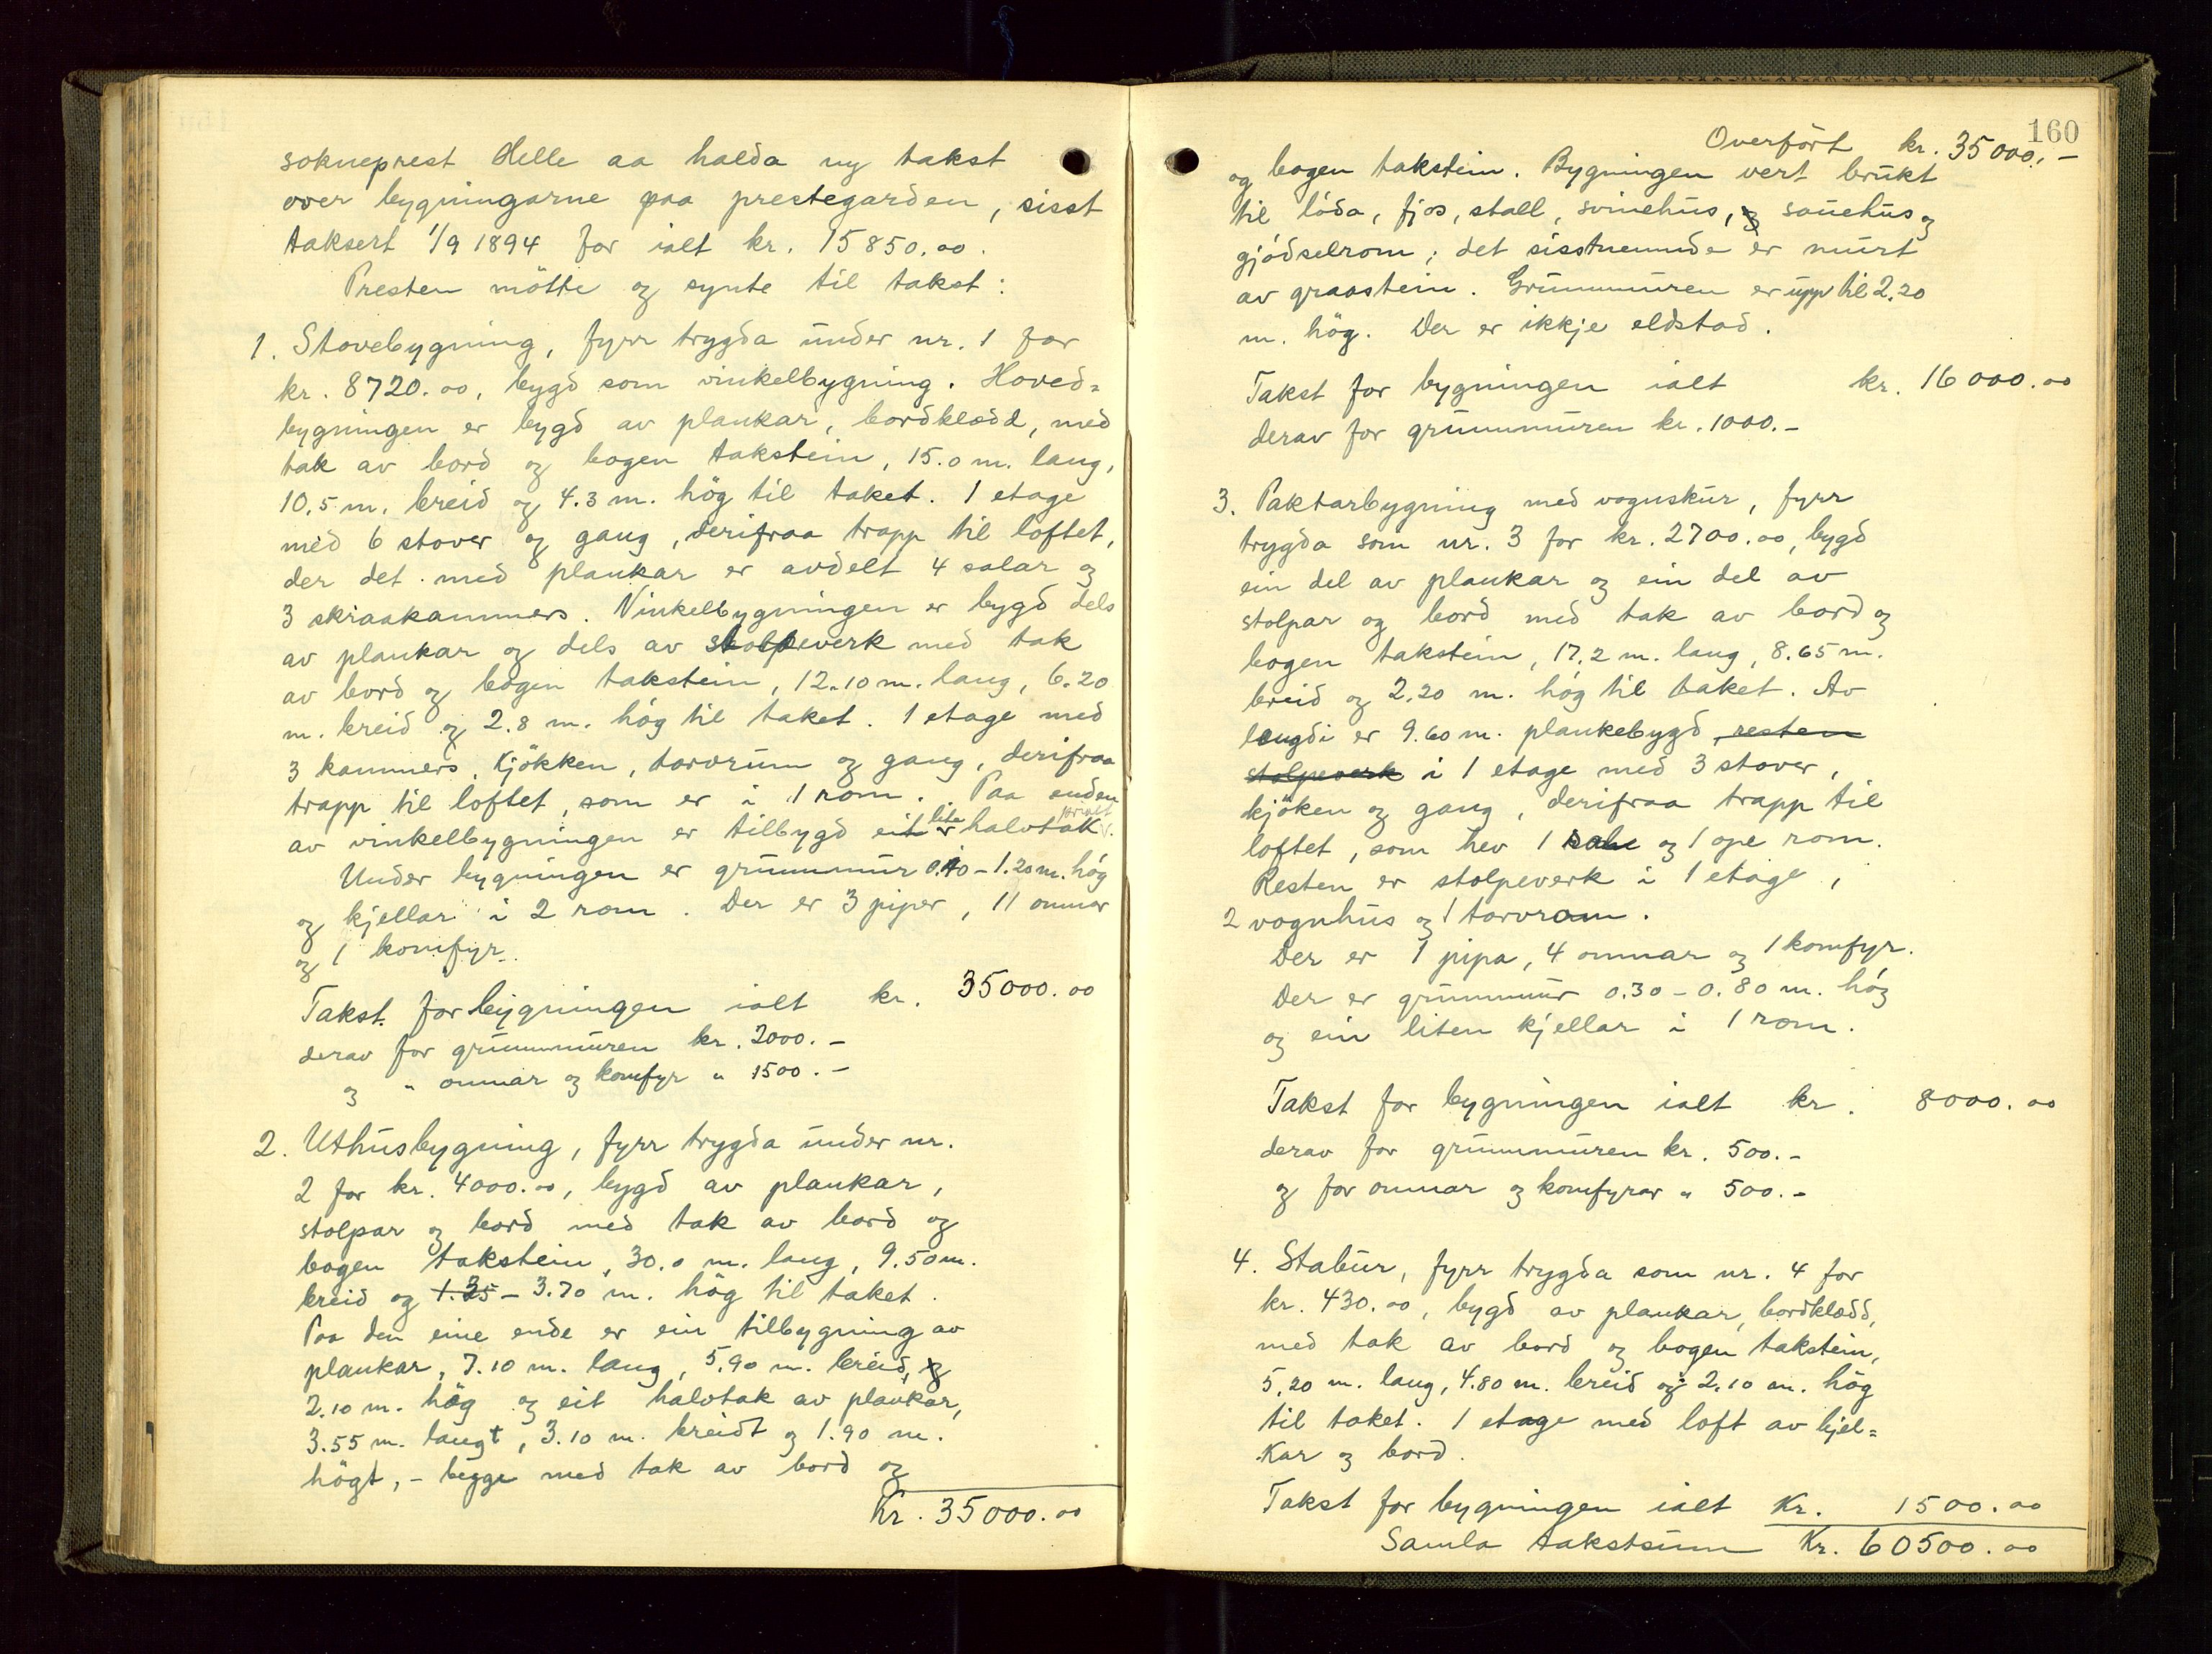 sokneprest Helle aa halda ny takst
over bygningarne paa prestegarden, sisst
taksert 1/9 1894 for ialt kr. 15850.00.
Presten mötte og synte til takst:
1. Stovebygning, fyrr trygda under nr. 1 for
kr. 8720.00, bygd som vinkelbygning. Hoved=
bygningen er bygd av plankar, bordklædd, med
tak av bord og bogen takstein, 15.0 m. lang,
10.5 m. breid og 4.3 m. hög til taket. 1 etage
med 6 stover og gang, derifraa trapp til loftet,
der det med plankar er avdelt 4 salar og
3 skraakammers. Vinkelbygningen er bygd dels
av plankar og dels av stolpeverk med tak
av bord og bogen takstein, 12.10 m. lang, 6.20
m. breid og 2.8 m. hög til taket. 1 etage med
3 kammers, kjökken, torvrum og gang, derifraa
trapp til loftet, som er i 1 rom. Paa enden
av vinkelbygningen er tilbygd eit lite halvtak
Under bygningen er grunnmur 0.40 – 1.20 m. hög
og kjellar i 2 rom. Der er 3 piper, 11 omnar
og 1 komfyr.
Takst for bygningen ialt kr. 35000.00
derav for grunnmuren kr. 2000.–
og " omnar og komfyr " 1500.–
2. Uthusbygning, fyrr trygda under nr.
2 for kr. 4000.00, bygd av plankar,
stolpar og bord med tak av bord og
bogen takstein, 30.0 m. lang, 9.50 m.
breid og 1.35 – 3.70 m. hög til taket.
Paa den eine ende er ein tilbygning av
plankar, 7.10 m. lang, 5.90 m. breid, og
2.10 m. hög og eit halvtak av plankar,
3.55 m. langt, 3.10 m. breidt og 1.90 m.
högt, – begge med tak av bord og
Kr. 35000.00
160
Overfört kr. 35000.–
og bogen takstein. Bygningen vert brukt
til löda, fjos, stall, svinehus, og sauehus og
gjödselrom; det sisstnemnde er murt
av graastein. Grunnmuren er upp til 2.20
m. hög. Der er ikkje eldstad.
Takst for bygningen ialt kr. 16000.00
derav for grunnmuren kr. 1000.–
3. Paktarbygning med vognskur, fyrr
trygda som nr. 3 for kr. 2700.00, bygd
ein del av plankar og ein del av
stolpar og bord med tak av bord og
bogen takstein, 17.2 m. lang, 8.65 m.
breid og 2.20 m. hög til taket. Av
lengdi er 9.60 m. plankebygd, resten
stolpeverk i 1 etage med 3 stover,
kjöken og gang, derifraa trapp til
loftet, som hev 1 sale og 1 ope rom.
Resten er stolpeverk i 1 etage,
2 vognhus og 1 torvrom.
Der er 1 pipa, 4 omnar og 1 komfyr.
Der er grunnmur 0.30 – 0.80 m. hög
og ein liten kjellar i 1 rom.
Takst for bygningen ialt kr. 8000.00
derav for grunnmuren kr. 500.–
og for omnar og komfyrar " 500.–
4. Stabur, fyrr trygda som nr. 4 for
kr. 430.00, bygd av plankar, bordklædd,
med tak av bord og bogen takstein,
5.20 m. lang, 4.80 m. breid og 2.10 m. hög
til taket. 1 etage med loft av bjel=
kar og bord.
Takst for bygningen ialt Kr. 1500.00
Samla takstsum Kr. 60500.00